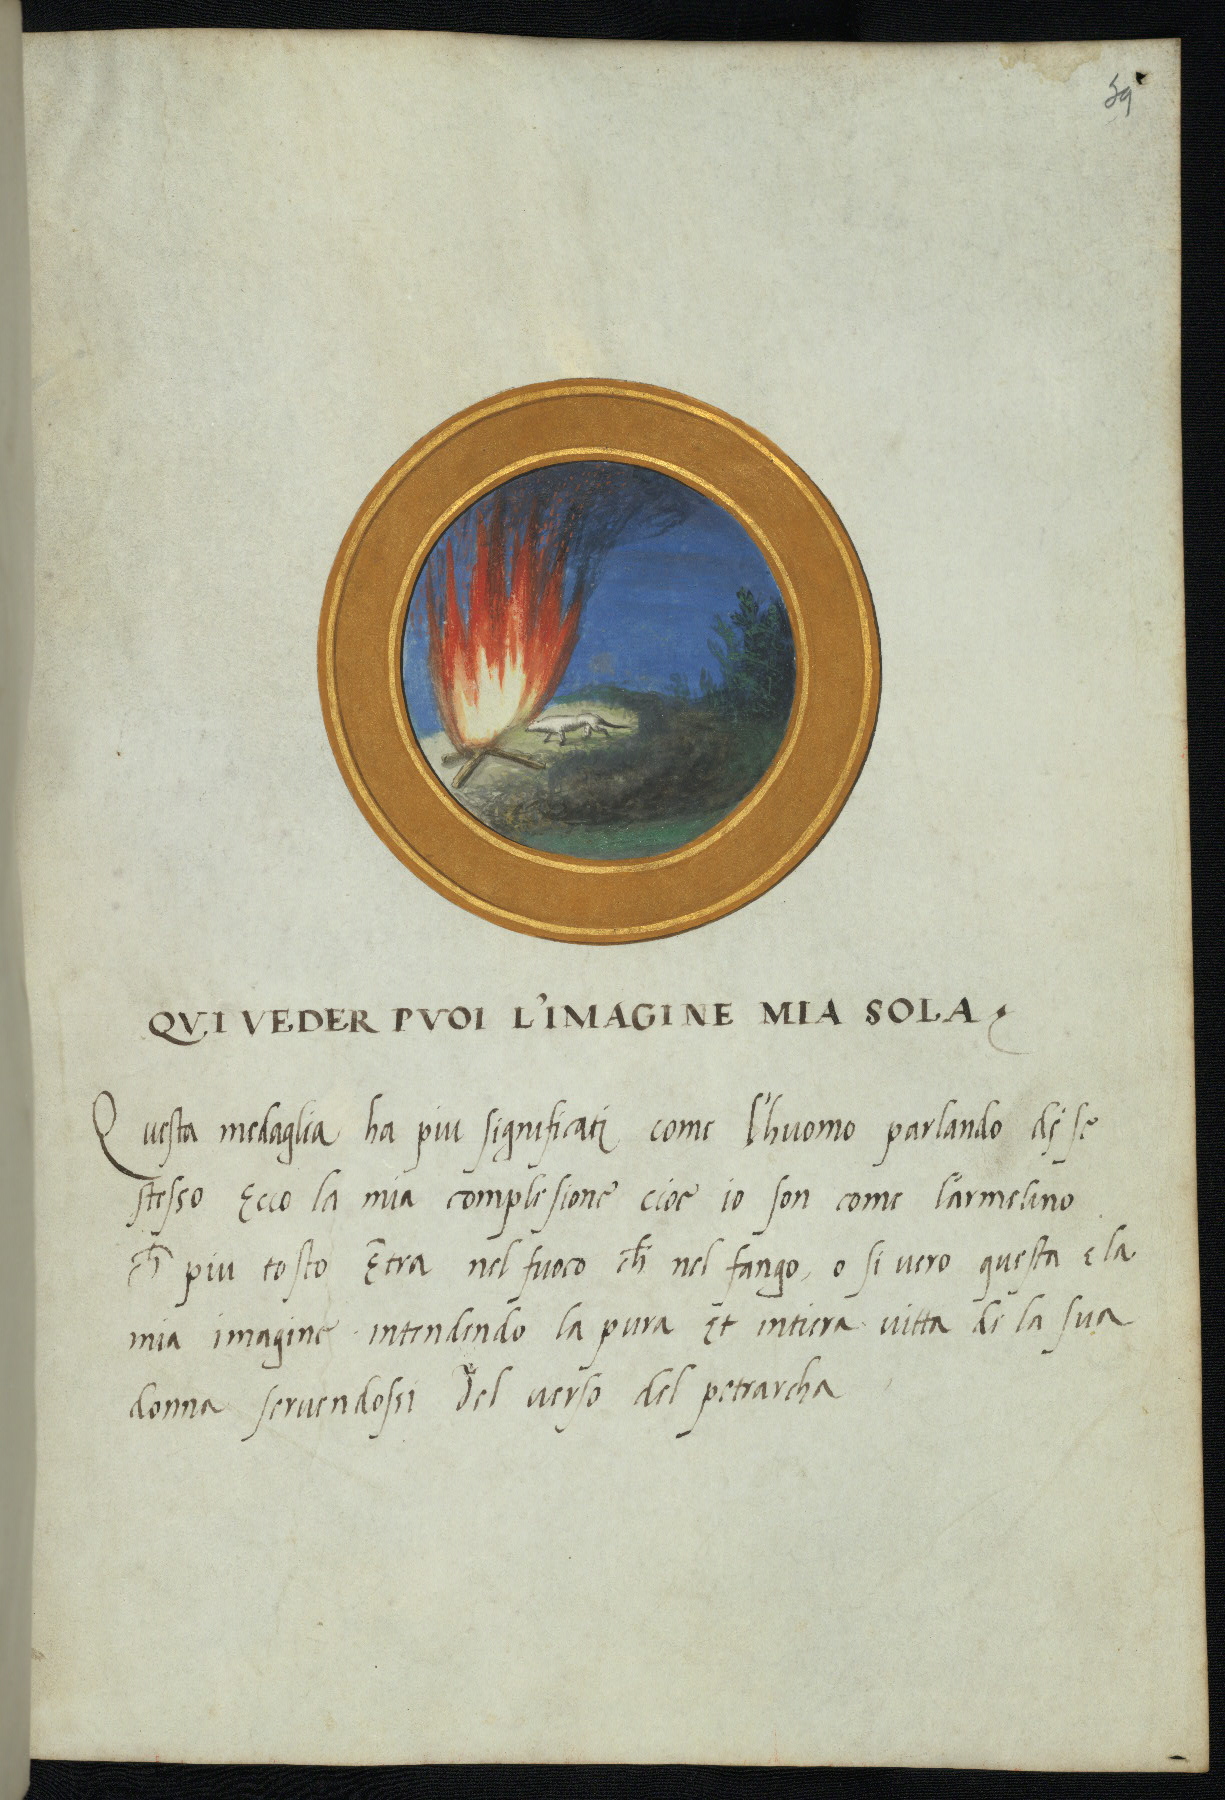 39
QVI VEDER PVOI L'IMAGINE MIA SOLA
Questa medaglia ha piu significati come l'huomo parlando di se
stesso Ecco la mia complesione cioe io son come l'armelino
ch̄ piu tosto ētra nel fuoco ch̄ nel fango, o si vero questa e la
mia imagine intendendo la pura et intiera vitta de la sua
donna servendossi del verso del petrarcha